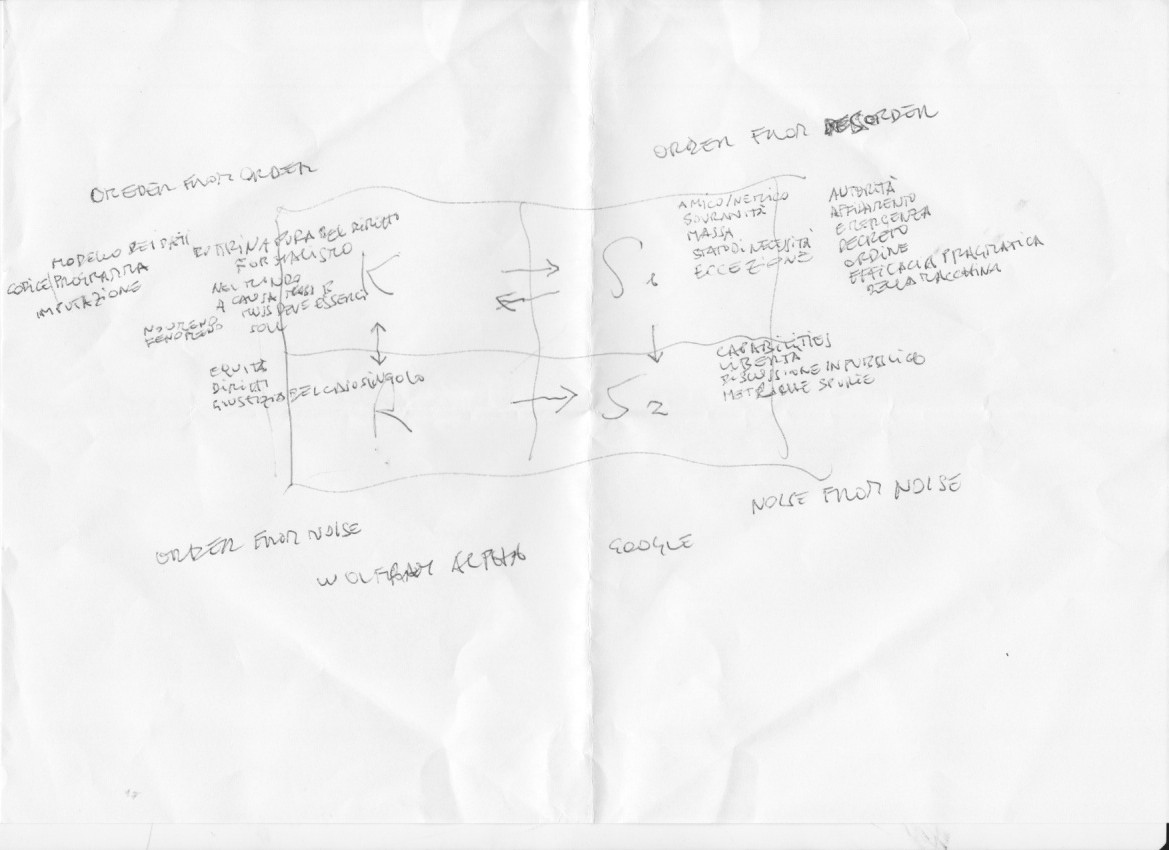 ORDER FROM DISORDER
OREDER FROM ORDER
AMICO/NEMICO
SOVRANITÀ
MASSA
STATO DI NECESSITÀ
ECCEZIONE
AUTORITÀ
AFFIDAMENTO
EMERGENZA
DECRETO
ORDINE
EFFICACIA PRAGMATICA
DELLA MACCHINA
MODELLO DEI DATI
CODICE/PROGRAMMA
IMPUTAZIONE
DOTTRINA PURA DEL DIRITTO
FORMALISMO
NEL MONDO
A CAUSA
DEVE ESSERCI
NOUMENO
FENOMENO
K
S1
EQUITÀ
DIRITTI
GIUSTIZIA DEL CASO SINGOLO
R
S2
CAPABILITIES
LIBERTÀ
DISCUSSIONE IN PUBBLICO
METRICHE SPURIE
NOISE FROM NOISE
ORDER FROM NOISE
WOLFRAM ALPHA
GOOGLE